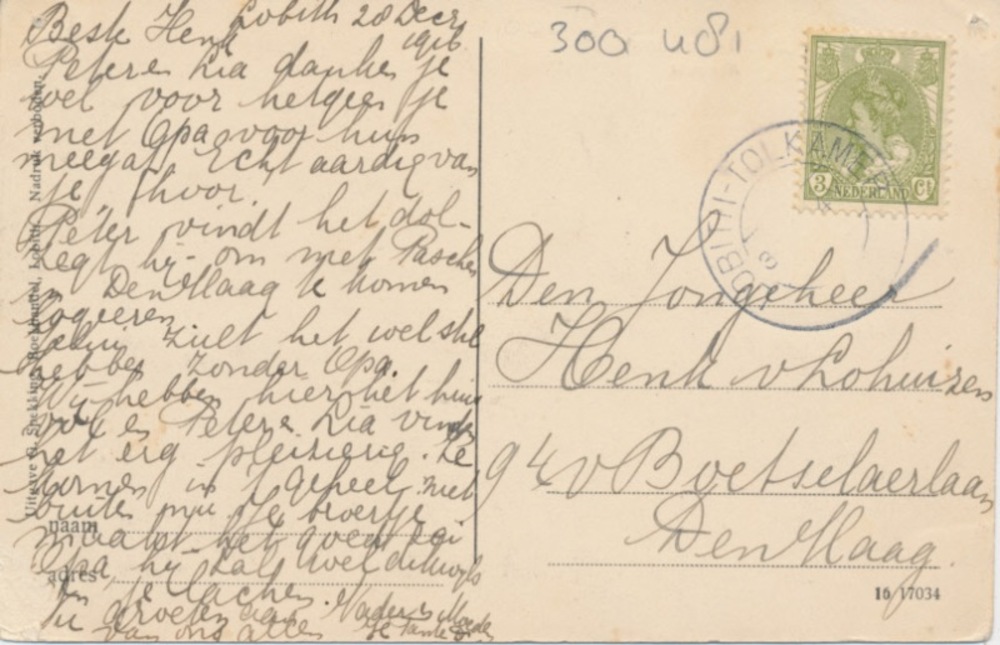 Lobith 28 Decr
1916
Beste Henk
Peter en Lia danken je
wel voor hetgeen je
met Opa voor hun
meegaf. Echt aardig van
je hoor.
Peter vindt het dol-
zegt hij - om met Paschen
in Den Haag te komen
logeeren.
zult het wel stil
hebben zonder Opa.
Wij hebben hier het huis
vol en Peter en Lia vinden
het erg pleizierig. Ze
komen in 't geheel niet
buiten nu. Je broertje
maakt het goed zei
Opa hij zal wel dikwijls
lachen.
groeten aan Vader en Moeder
van ons allen je Tante
Uitgave G. Spekking Boekhandel, Lobith. Nadruk verboden.
naam
adres
300 481
3 NEDERLAND Ct
LOBITH-TOLKAMER
Den Jongeheer
Henk v Lohuizen
94 v Boetselaerlaan
Den Haag.
16 17034